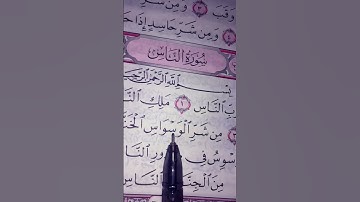 وَقَبَ ٣ وَمِن شَرِّ
وَمِن شَرِّ حَاسِدٍ إِذَا حَ
سُورَةُ النَّاسِ
بِسْمِ ٱللَّهِ ٱلرَّحْمَٰنِ ٱلرَّحِيمِ
بِّ ٱلنَّاسِ ١ مَلِكِ ٱلنَّ
مِن شَرِّ ٱلْوَسْوَاسِ ٱلْخَنَّ
سْوِسُ فِى دُورِ ٱلنَّا
مِنَ ٱلْجِنَّ ٱلنَّاسِ